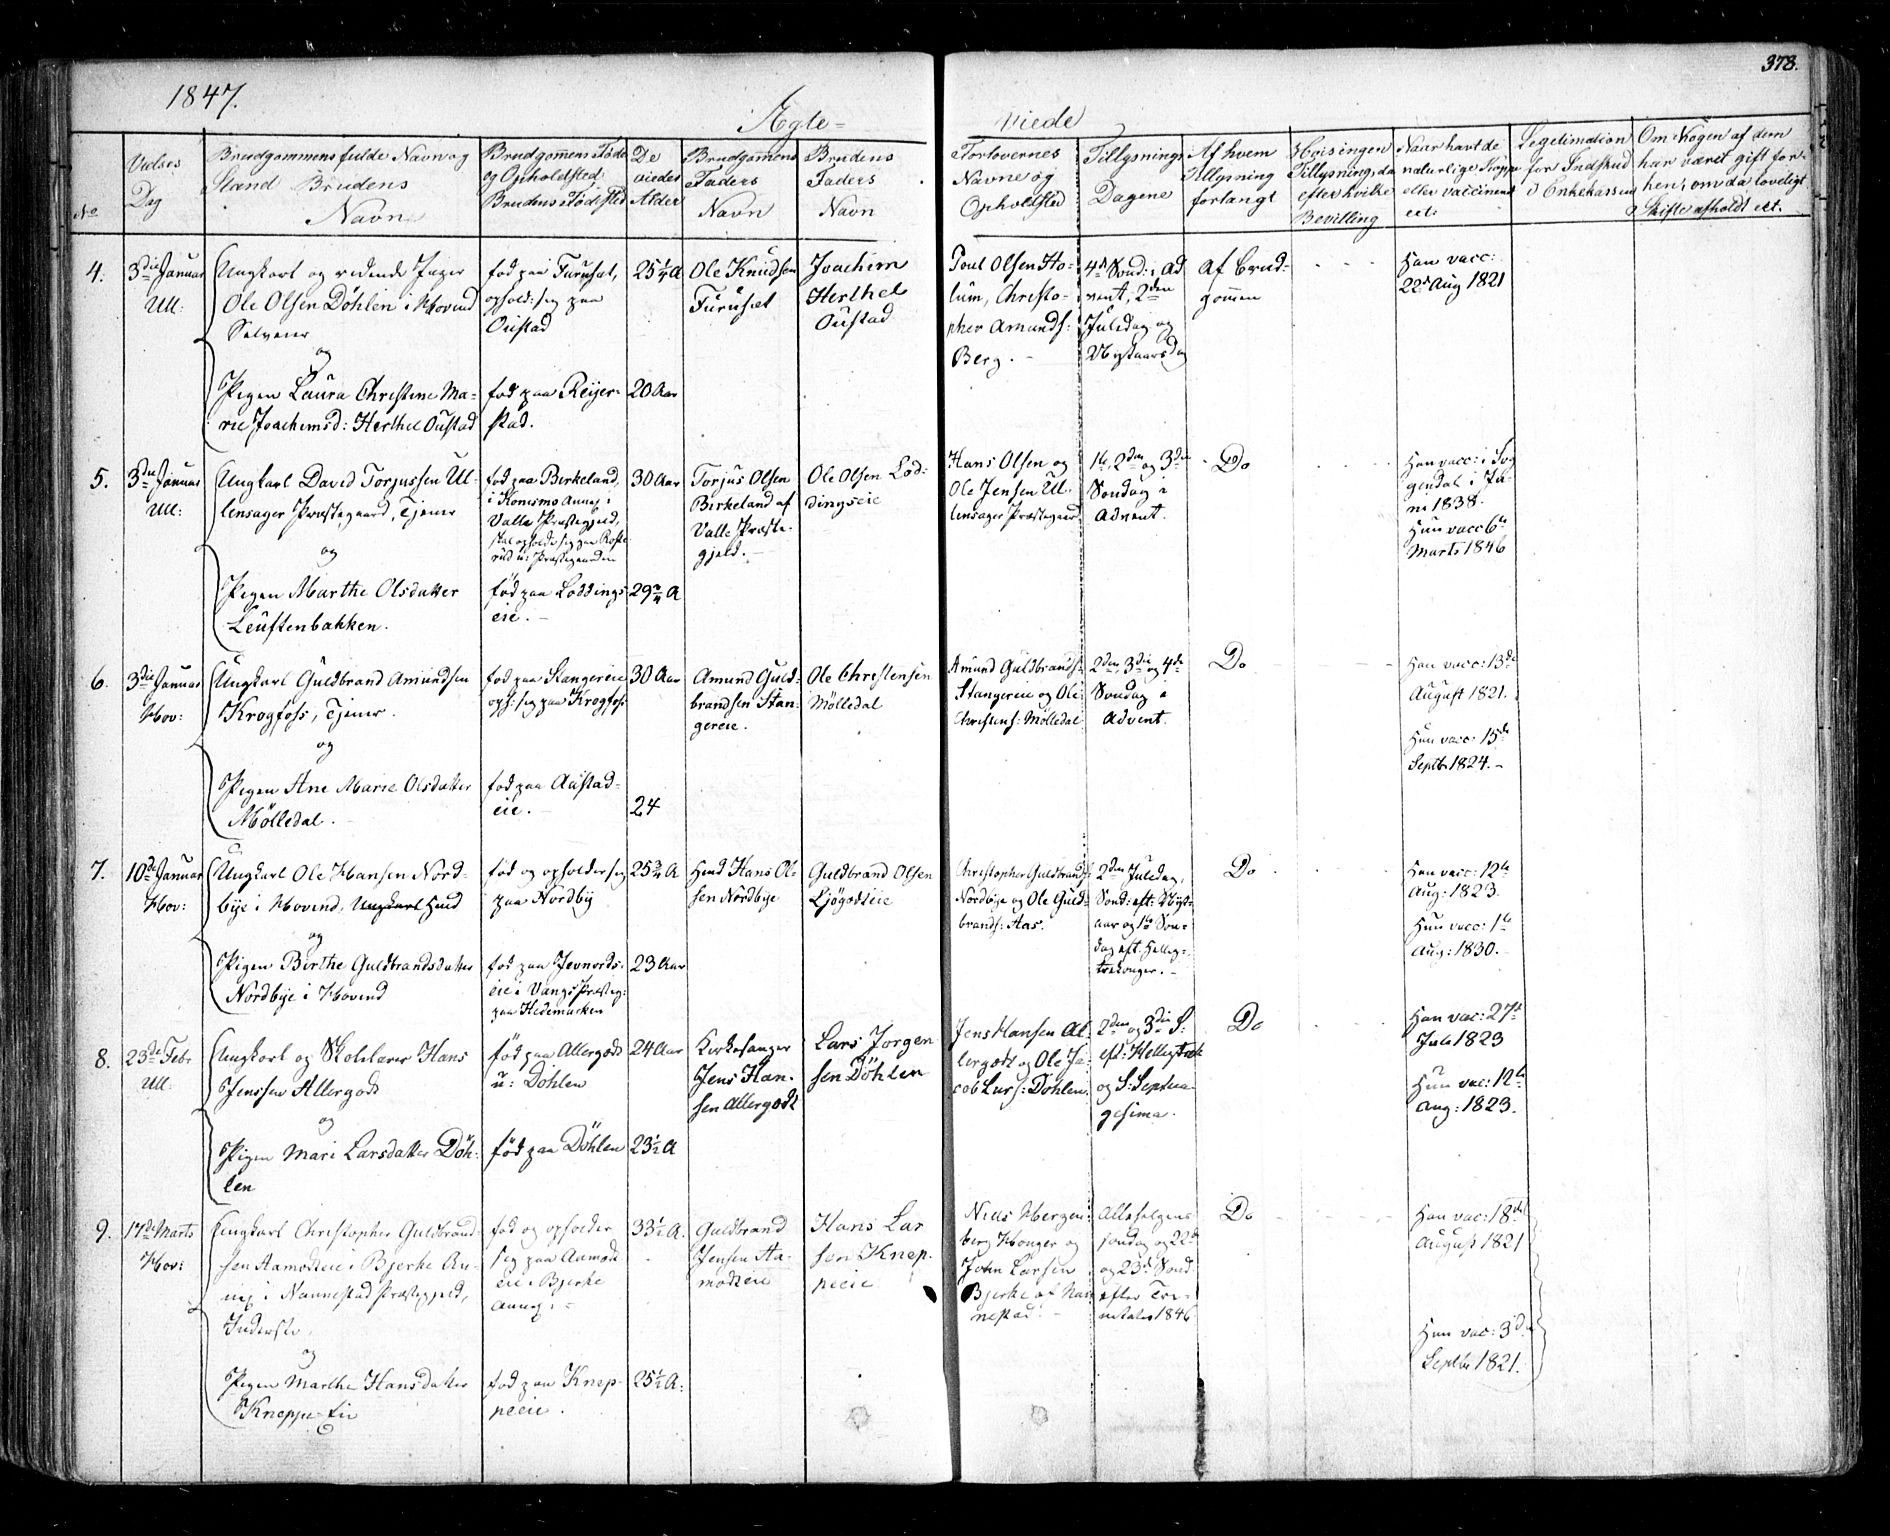 1847.
378.
Ægte=
viede
No
Vielses
Dag
Brudgommens fulde Navn og
Stand Brudens
Navn
Brudgomens Føde
og Opholdsted:
Brudens Fødested
De
viedes
Alder
Brudgomens
Faders
Navn
Brudens
Faders
Navn
Forlovernes
Navne og
Opholdsted
Tillysnings
Dagene
Af hvem
Tillysning
forlangt
Hvis ingen
Tillysning, da
efter hvilke
Bevilling
Naar havt de
naturlige Kopper
eller vaccineret
ect:
Legitimation
for Indskud
i Enkekassen
Om Nogen af dem
har været gift for-
hen, om da lovligt
Skifte afholdt ect.
4.
3die Januar
Ull:
Ungkarl og ridende Jæger
Ole Olsen Döhlen i Hovind
Selveier
og
Pigen Laura Christine Ma-
rie Joachimsd: Herthel Oustad
fød paa Furuset,
ophold: sig paa
Oustad
fød paa Reijer-
stad.
25 1/4 A
20 Aar
Ole Knudsen
Furuset
Joachim
Herthel
Oustad
Poul Olsen Ho-
lum, Christo-
pher Amunds:
Berg.
4de Sønd: i Ad
vent, 2den
Juledag og
Nytaarsdag
Af Brud-
gommen
Han vacc:
22de Aug 1821
5.
3die Januar
Ull:
Ungkarl David Torjussen Ul-
lensager Præstegaard, Tjener
og
Pigen Marthe Olsdatter
Leuftenbakken.
fød paa Birkeland,
i Konsmo Annex i
Valle Præstegjeld,
skal opholde sig paa
Præstegaarden
fød paa Løddings
eie.
30 Aar
29 3/4 A
Torjus Olsen
Birkeland af
Valle Præste-
gjeld.
Ole Olsen Löd-
dingseie
Hans Olsen og
Ole Jensen Ul-
lensager Præstegaard
1ste, 2den og 3die
Søndag i
Advent.
Do
Han vacc: i So
gendal i Ju-
ni 1838.
Hun vacc 6te
Marts 1846
6.
3die Januar
Hov:
Ungkarl Guldbrand Amundsen
Krogfoss, Tjener.
og
Pigen Ane Marie Olsdatter
Mölledal.
fød paa Stangereie
oph: sig paa Krogfos
fød paa Aastad-
eie.
30 Aar
24
Amund Guld-
brandsen Stan-
gereie.
Ole Christensen
Mölledal
Amund Guldbrands:
Stangereie og Ole
Christens: Mölledal
2den, 3die og 4de
Søndag i
Advent.
Do
Han vacc: 13de
August 1821.
Hun vacc: 15de
Septbr 1824.
7.
10de Januar
Hov:
Ungkarl Ole Hansen Nord-
bye i Hovind, Ungkarl
og
Pigen Birthe Guldbrandsdatter
Nordbye i Hovind
fød og opholder sig
paa Nordby
fød paa Jevnords-
eie i Vangs Præsteg:
paa Hedemarken
25 3/4 A
23 Aar
Hans Ol-
sen Nordbye
Guldbrand Olsen
Ljögodseie
Christopher Guldbrands:
Nordbye og Ole Guld-
brands: Aas.
2den Juledag,
Sønd: eft: Nyt-
aar og 1ste Søn-
dag eft. Hellig-
trekonger.
Do
Han vacc: 12te
Aug: 1823.
Hun vacc: 1ste
Aug: 1830.
8.
23de Febr
Ull:
Ungkarl og Skolelærer Hans
Jenssen Allergodt
og
Pigen Mari Larsdatter Döh-
len
fød paa Allergodt
u: Döhlen
fød paa Döhlen
24 Aar
23 1/2 A
Kirkesanger
Jens Han-
sen Allergodt
Lars Jörgen
sen Döhlen
Jens Hansen Al-
lergodt og Ole Ja-
cob Lars: Döhlen.
2den og 3die S:
eft: Helligtrek
og S: Septua
gesima.
Do
Han vac: 27de
Juli 1823
Hun vac: 12te
Aug: 1823.
9.
17de Marts
Hov:
Ungkarl Christopher Guldbrand-
sen Aamodseie i Bjerke An-
nex i Nannestad Præstegjeld,
Inderste.
og
Pigen Marthe Hansdatter
Kneppe-Eie
fød og opholder
sig paa Aamod
eie i Bjerke
Annex.
fød paa Knep-
peeie.
33 1/2 A.
25 1/2 A.
Guldbrand
Jensen Aa-
modseie
Hans Lar
sen Knep-
peeie
Niels Hergen
berg Hougor og
John Larsen
Bjerke af Nan
nestad.
Allehelgens
søndag og 22de
og 23de Sønd.
efter Tri-
nitatis 1846
Do
Han vac: 18de
August 1821
Hun vac: 3die
Septbr 1821.